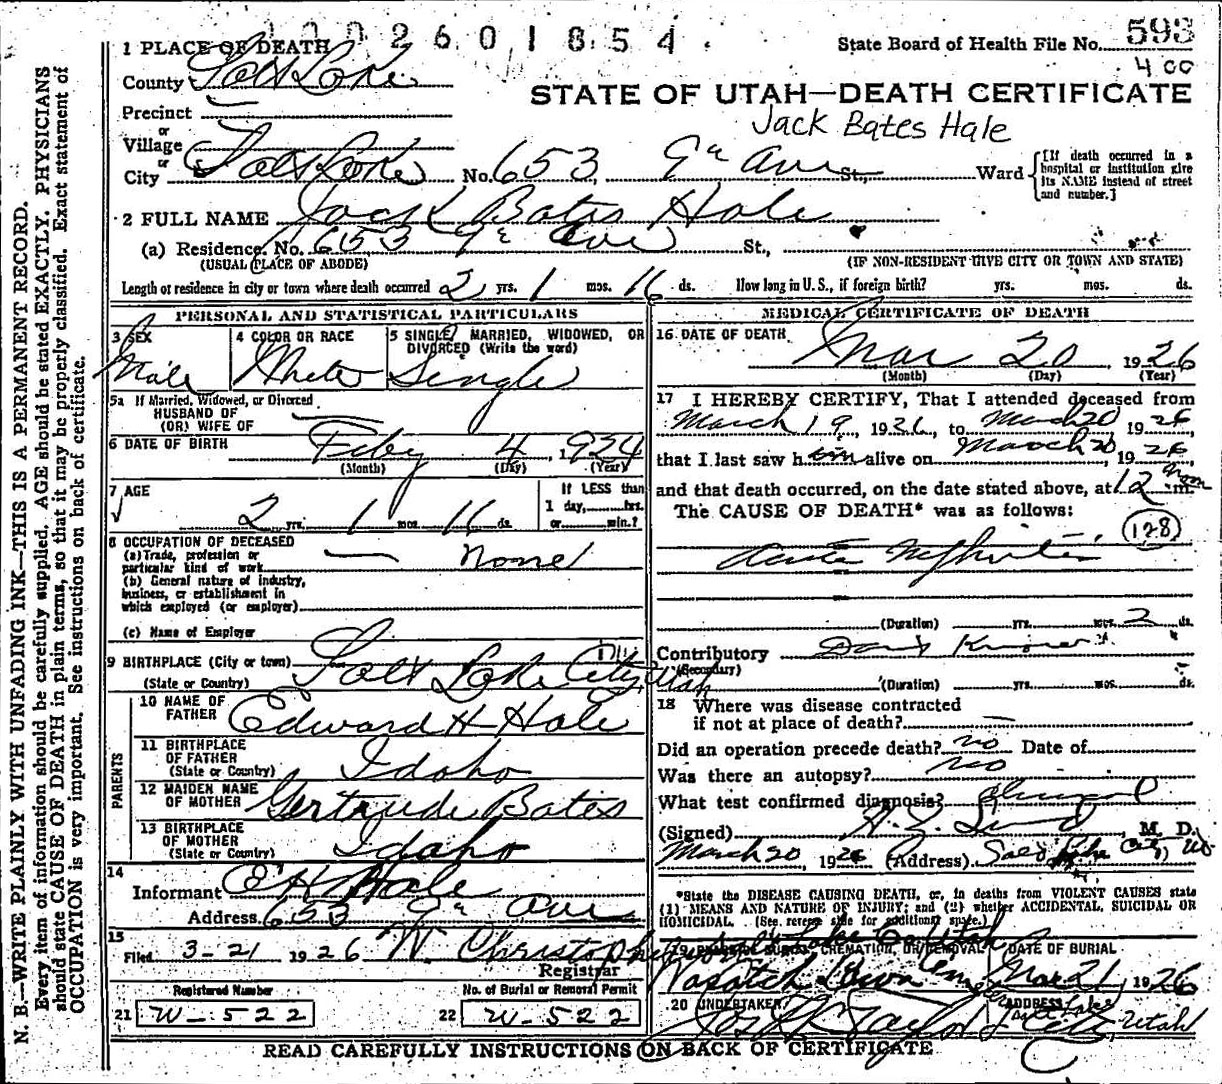 1002601854.
State Board of Health File No. 593
400
1 PLACE OF DEATH
County Salt Lake
STATE OF UTAH—DEATH CERTIFICATE
Precinct
Jack Bates Hale
or
Village
or
City Salt Lake No. 653, 9th Ave St., Ward
[If death occurred in a hospital or institution give its NAME instead of street and number.]
2 FULL NAME Jack Bates Hale
(a) Residence. No. 653 9th Ave St.,
(USUAL PLACE OF ABODE) (IF NON-RESIDENT GIVE CITY OR TOWN AND STATE)
Length of residence in city or town where death occurred 2 yrs. 1 mos. 16 ds. How long in U. S., if foreign birth? yrs. mos. ds.
PERSONAL AND STATISTICAL PARTICULARS
3 SEX
Male
4 COLOR OR RACE
White
5 SINGLE, MARRIED, WIDOWED, OR DIVORCED (Write the word)
Single
5a If Married, Widowed, or Divorced
HUSBAND OF
(OR) WIFE OF
6 DATE OF BIRTH Feby 4, 1924
(Month) (Day) (Year)
7 AGE
2 yrs. 1 mos. 16 ds.
If LESS than
1 day, hrs.
or min.?
8 OCCUPATION OF DECEASED
(a) Trade, profession or
particular kind of work None
(b) General nature of industry,
business, or establishment in
which employed (or employer)
(c) Name of Employer
9 BIRTHPLACE (City or town) Salt Lake City, Utah
(State or Country)
PARENTS
10 NAME OF
FATHER Edward H Hale
11 BIRTHPLACE
OF FATHER Idaho
(State or Country)
12 MAIDEN NAME
OF MOTHER Gertrude Bates
13 BIRTHPLACE
OF MOTHER Idaho
(State or Country)
14
Informant E H Hale
Address 653 9th Ave
15
Filed 3-21 1926 W. Christoph
Registrar
Registered Number No. of Burial or Removal Permit
21 W-522 22 W-522
MEDICAL CERTIFICATE OF DEATH
16 DATE OF DEATH
Mar 20 1926
(Month) (Day) (Year)
17 I HEREBY CERTIFY, That I attended deceased from
March 19, 1926, to March 20, 1926,
that I last saw him alive on March 20, 1926,
and that death occurred, on the date stated above, at 12 noon m.
The CAUSE OF DEATH* was as follows:
128
Acute Nephritis
(Duration) yrs. mos. 2 ds.
Contributory Dont Know
(Secondary)
(Duration) yrs. mos. ds.
18 Where was disease contracted
if not at place of death? —
Did an operation precede death? no Date of
Was there an autopsy? no
What test confirmed diagnosis?
(Signed) A. Z. Lund, M. D.
March 20 1926 (Address) Salt Lake City,
*State the DISEASE CAUSING DEATH, or, in deaths from VIOLENT CAUSES state
(1) MEANS AND NATURE OF INJURY; and (2) whether ACCIDENTAL, SUICIDAL OR
HOMICIDAL. (See reverse side for additional space.)
19 PLACE OF BURIAL, CREMATION, OR REMOVAL DATE OF BURIAL
Wasatch Lawn Mar 21 1926
20 UNDERTAKER ADDRESS
Jos Wm Taylor Salt Lake City, Utah
READ CAREFULLY INSTRUCTIONS ON BACK OF CERTIFICATE
N. B.—WRITE PLAINLY WITH UNFADING INK—THIS IS A PERMANENT RECORD.
Every item of information should be carefully supplied. AGE should be stated EXACTLY. PHYSICIANS
should state CAUSE OF DEATH in plain terms, so that it may be properly classified. Exact statement of
OCCUPATION is very important. See instructions on back of certificate.